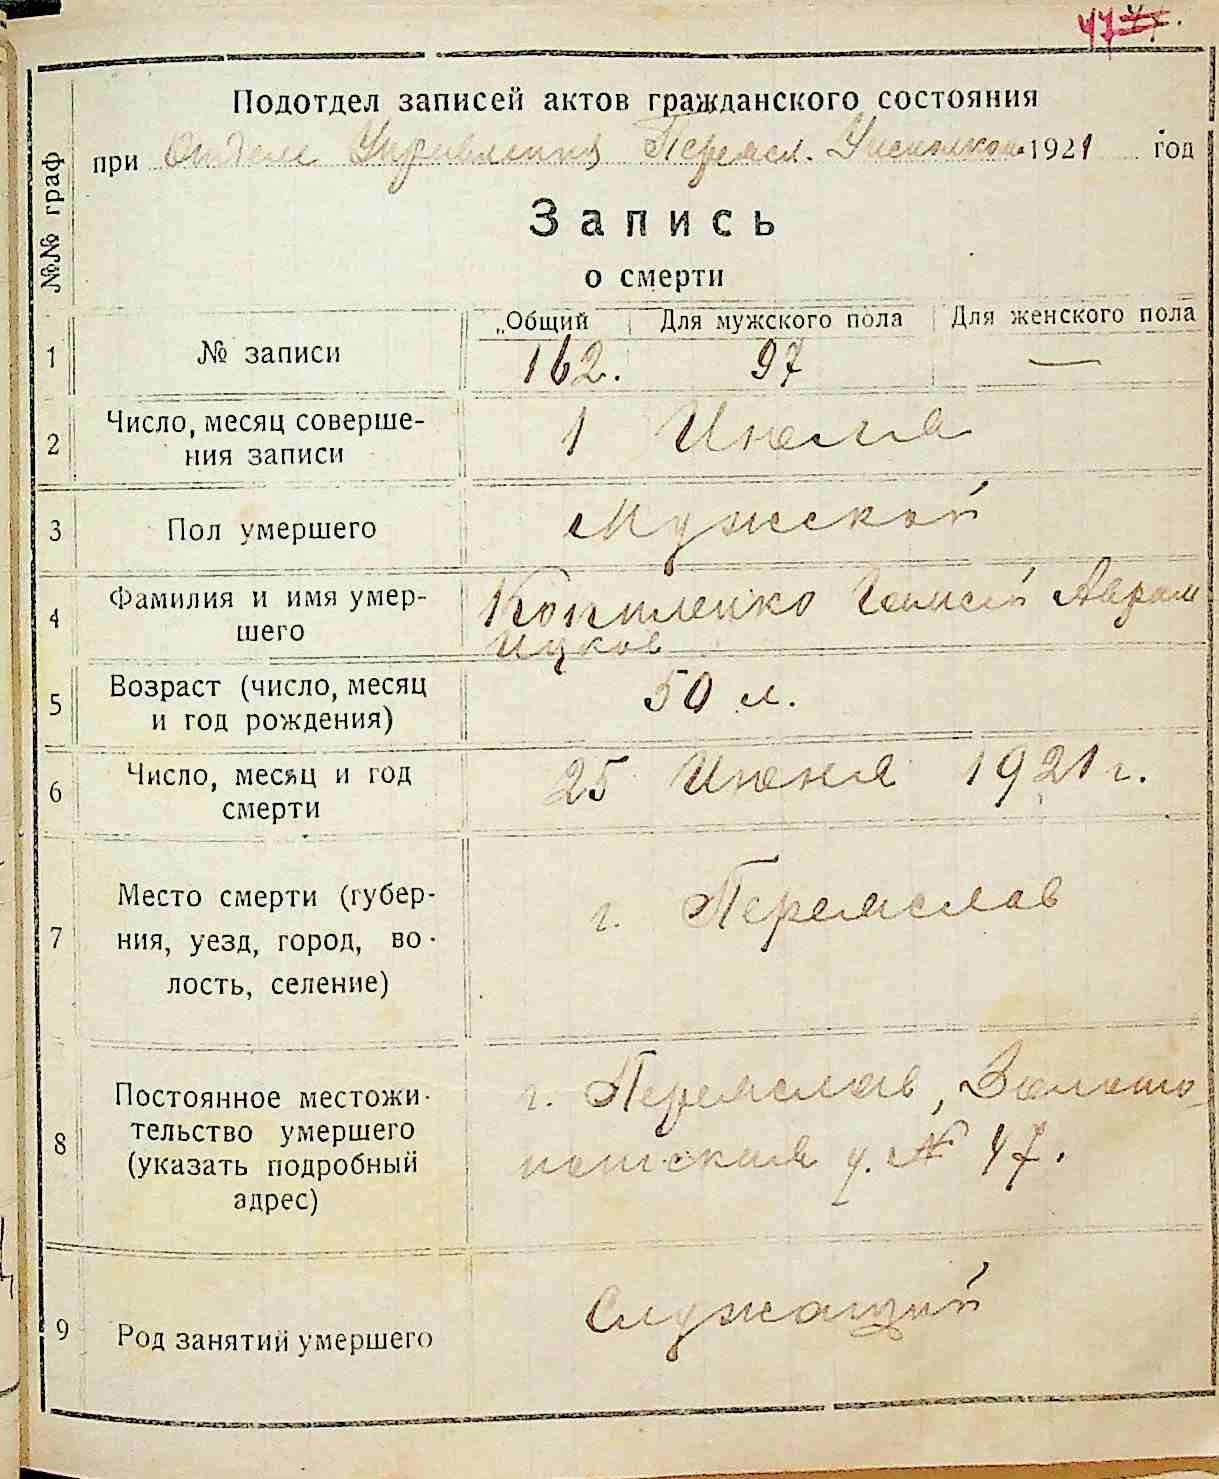 47
Подотдел записей актов гражданского состояния
при Отделе Управления Переясл. Уисполкома 1921 год
№№ граф
Запись
о смерти
Общий Для мужского пола Для женского пола
1 № записи 162. 97 —
2 Число, месяц соверше-
ния записи 1 Июля
3 Пол умершего Мужской
4 Фамилия и имя умер-
шего Копиленко Аврам
Ицков
5 Возраст (число, месяц
и год рождения) 50 л.
6 Число, месяц и год
смерти 25 Июня 1921 г.
7 Место смерти (губер-
ния, уезд, город, во-
лость, селение) г. Переяслав
8 Постоянное местожи-
тельство умершего
(указать подробный
адрес) г. Переяслав, Золото-
ношская у. № 47.
9 Род занятий умершего Служащий